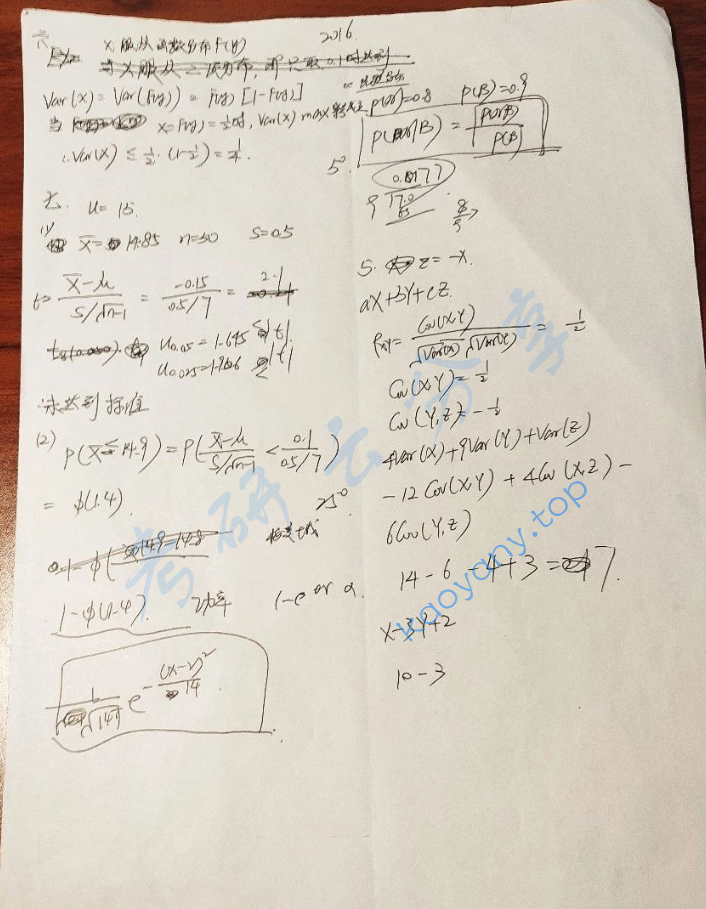 六
2016.
X服从函数分布F(y)
Var(X) = Var(F(y)) = F(y) [1-F(y)]
当 X=F(y)=½时, Var(X) max
∴Var(X) ≤ ½·(1-½)=¼.
七. u= 15.
(1) x̄= 14.85 n=50 S=0.5
t= (x̄-μ)/(S/√n-1) = -0.15/(0.5/7) = 2.1
u0.05=1.645 ≤|t|
u0.025=1.96
未达到标准
(2) P(x̄≤14.9) = P((x̄-μ)/(S/√n-1) < 0.1/(0.5/7))
= φ(1.4).
1-φ(1.4). 功率 1-β or α.
1/√14π e^-(x-2)²/14
P(A)=0.8 P(B)=0.9
P(A|B) = P(AB)/P(B)
5°.
25°
5. z=-x.
aX+bY+cZ.
ρxy= Cov(X,Y)/(√Var(X) √Var(Y)) = ½
Cov(X,Y)=½
Cov(Y,Z)=-½
4Var(X)+9Var(Y)+Var(Z)
-12Cov(X,Y) + 4Cov(X,Z) -
6Cov(Y,Z)
14-6-4+3=7.
X-3Y+2
10-3
考研云分享
kaoyany.top